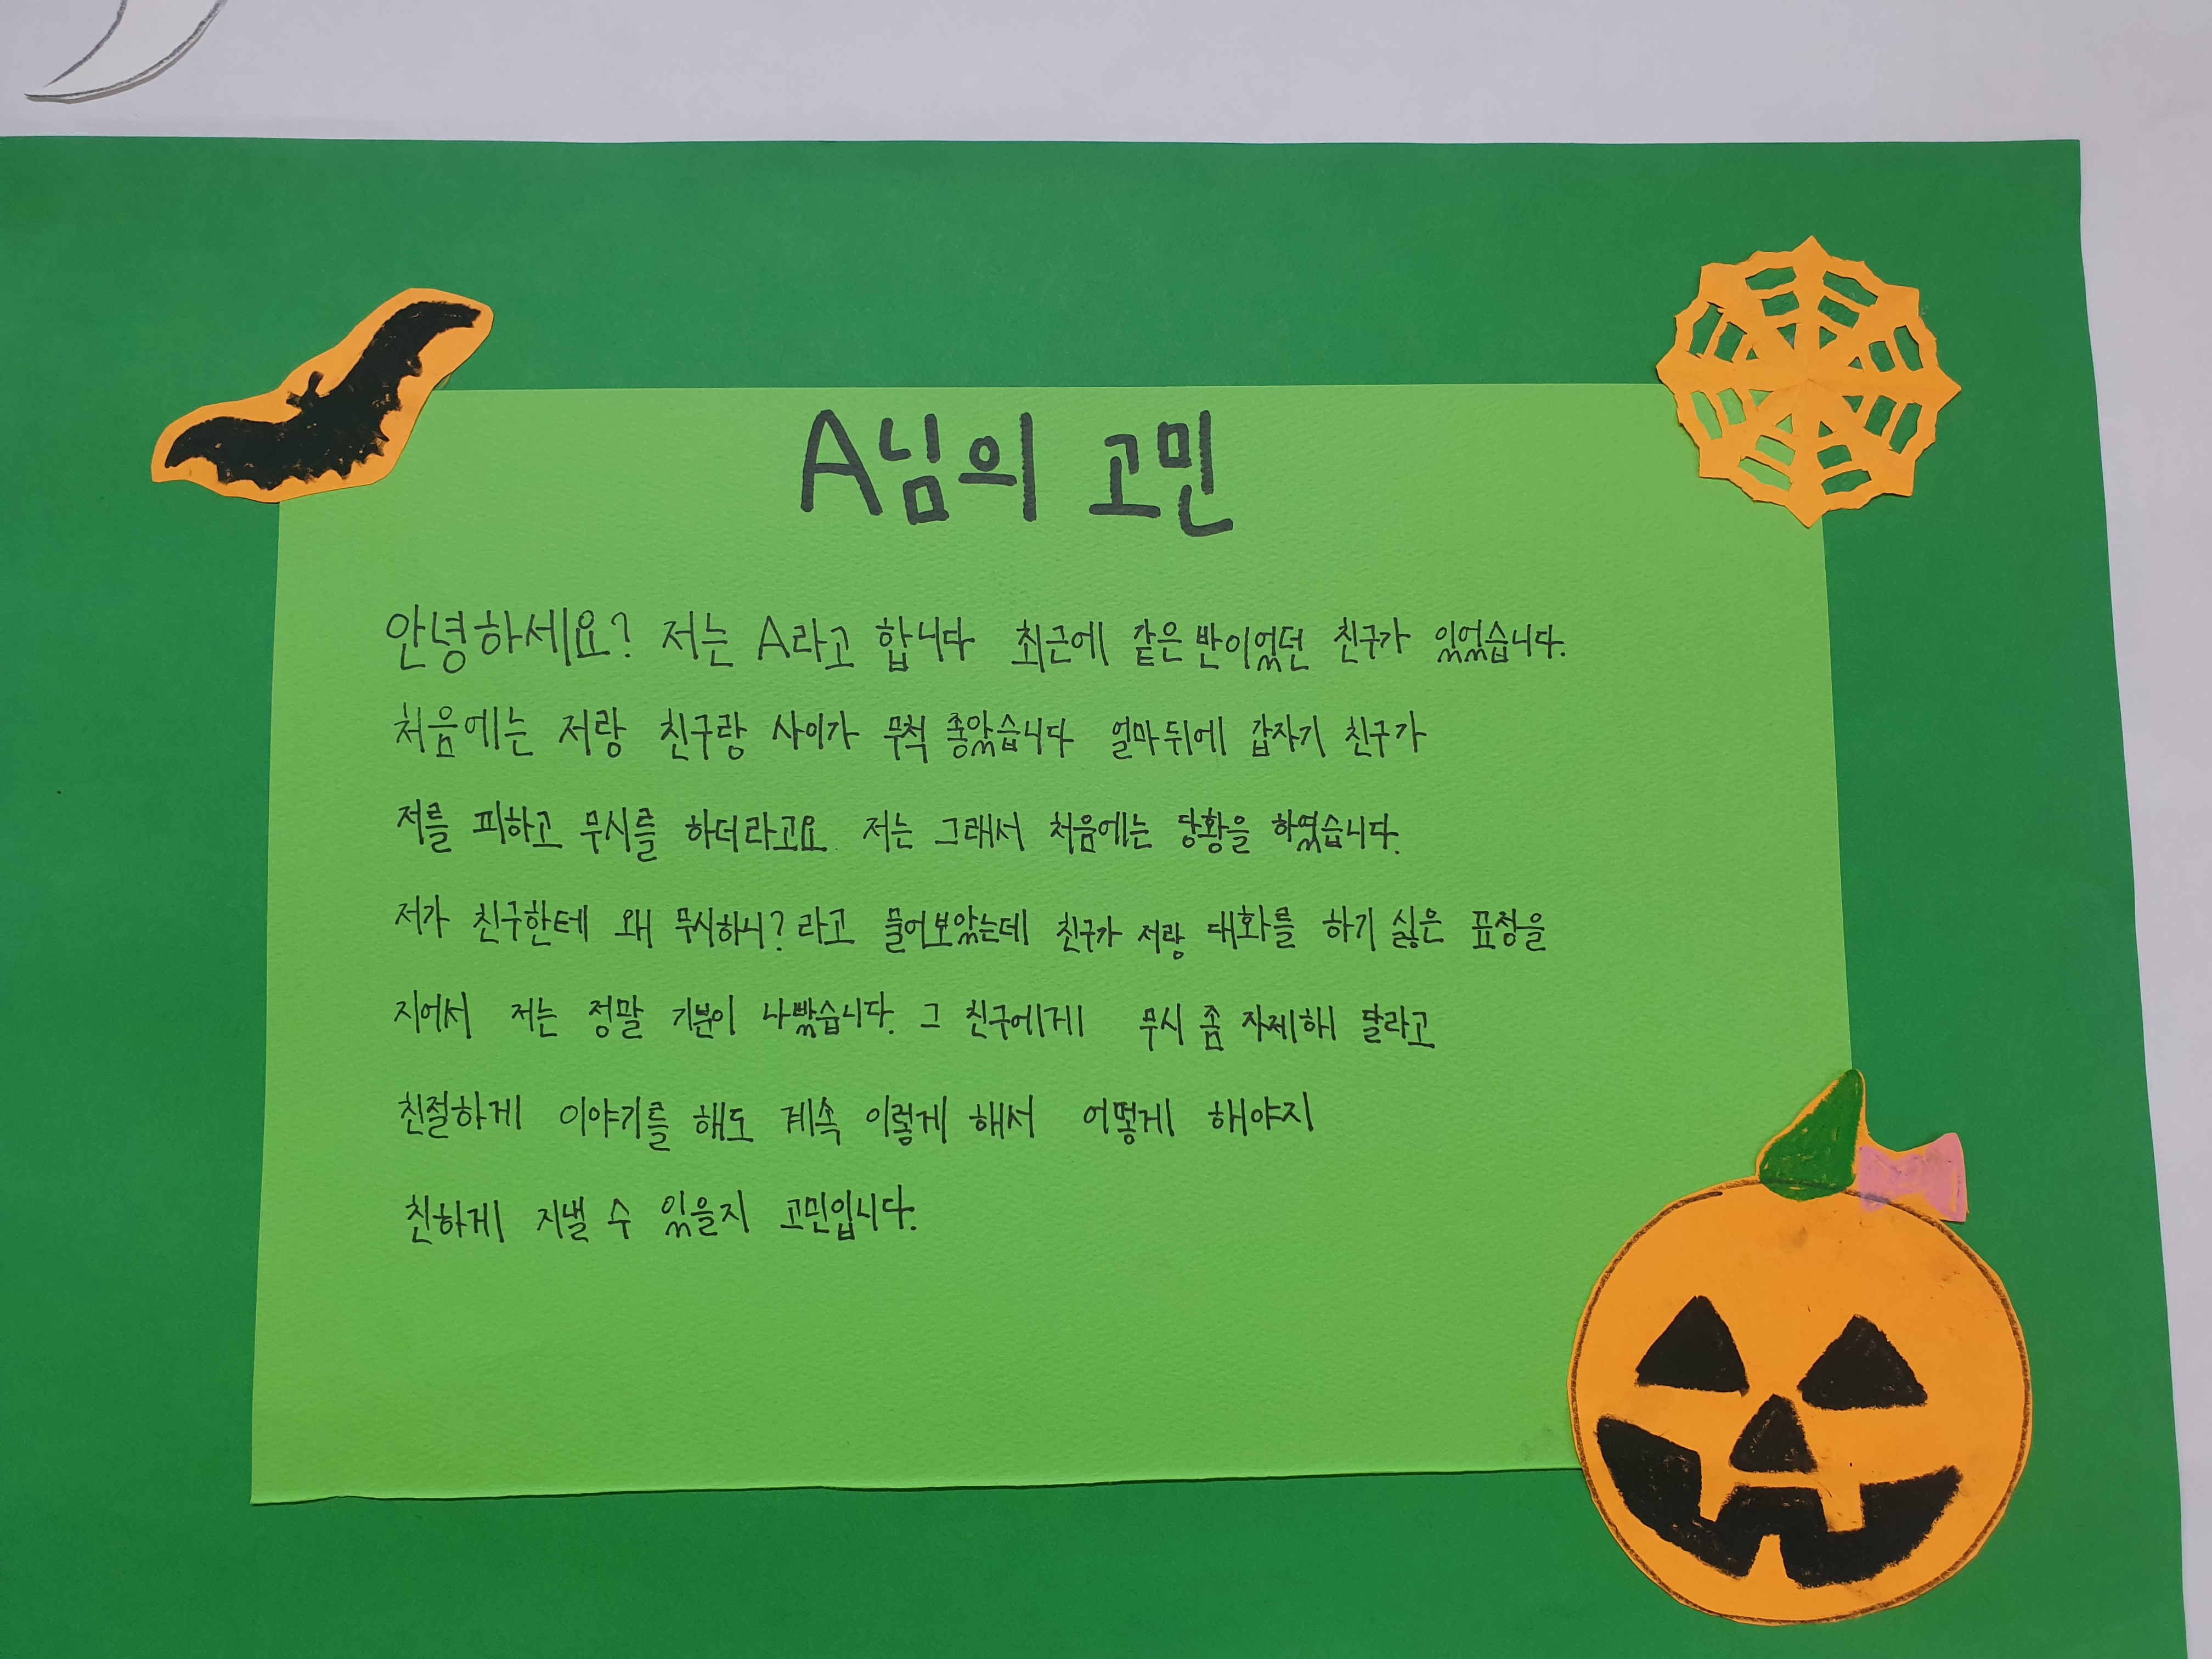 A님의 고민
안녕하세요? 저는 A라고 합니다 최근에 같은 반이었던 친구가 있었습니다.
처음에는 저랑 친구랑 사이가 무척 좋았습니다 얼마 뒤에 갑자기 친구가
저를 피하고 무시를 하더라고요. 저는 그래서 처음에는 당황을 하였습니다.
저가 친구한테 왜 무시하니? 라고 물어보았는데 친구가 저랑 대화를 하기 싫은 표정을
지어서 저는 정말 기분이 나빴습니다. 그 친구에게 무시 좀 자제해 달라고
친절하게 이야기를 해도 계속 이렇게 해서 어떻게 해야지
친하게 지낼 수 있을지 고민입니다.